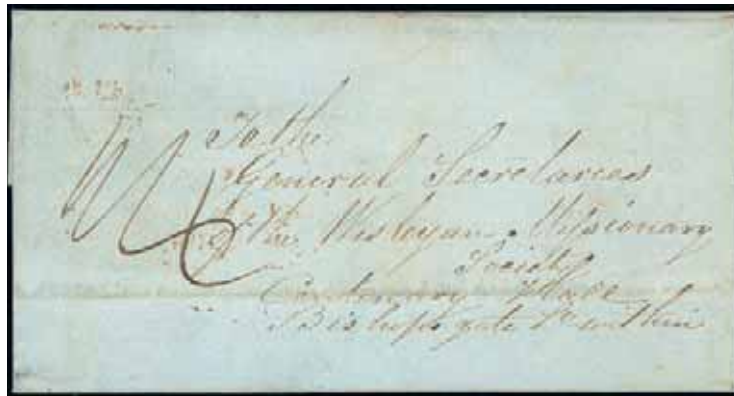 To the
General Secretaries
of the Wesleyan Missionary
Society
Centenary Place
Bishopsgate St within